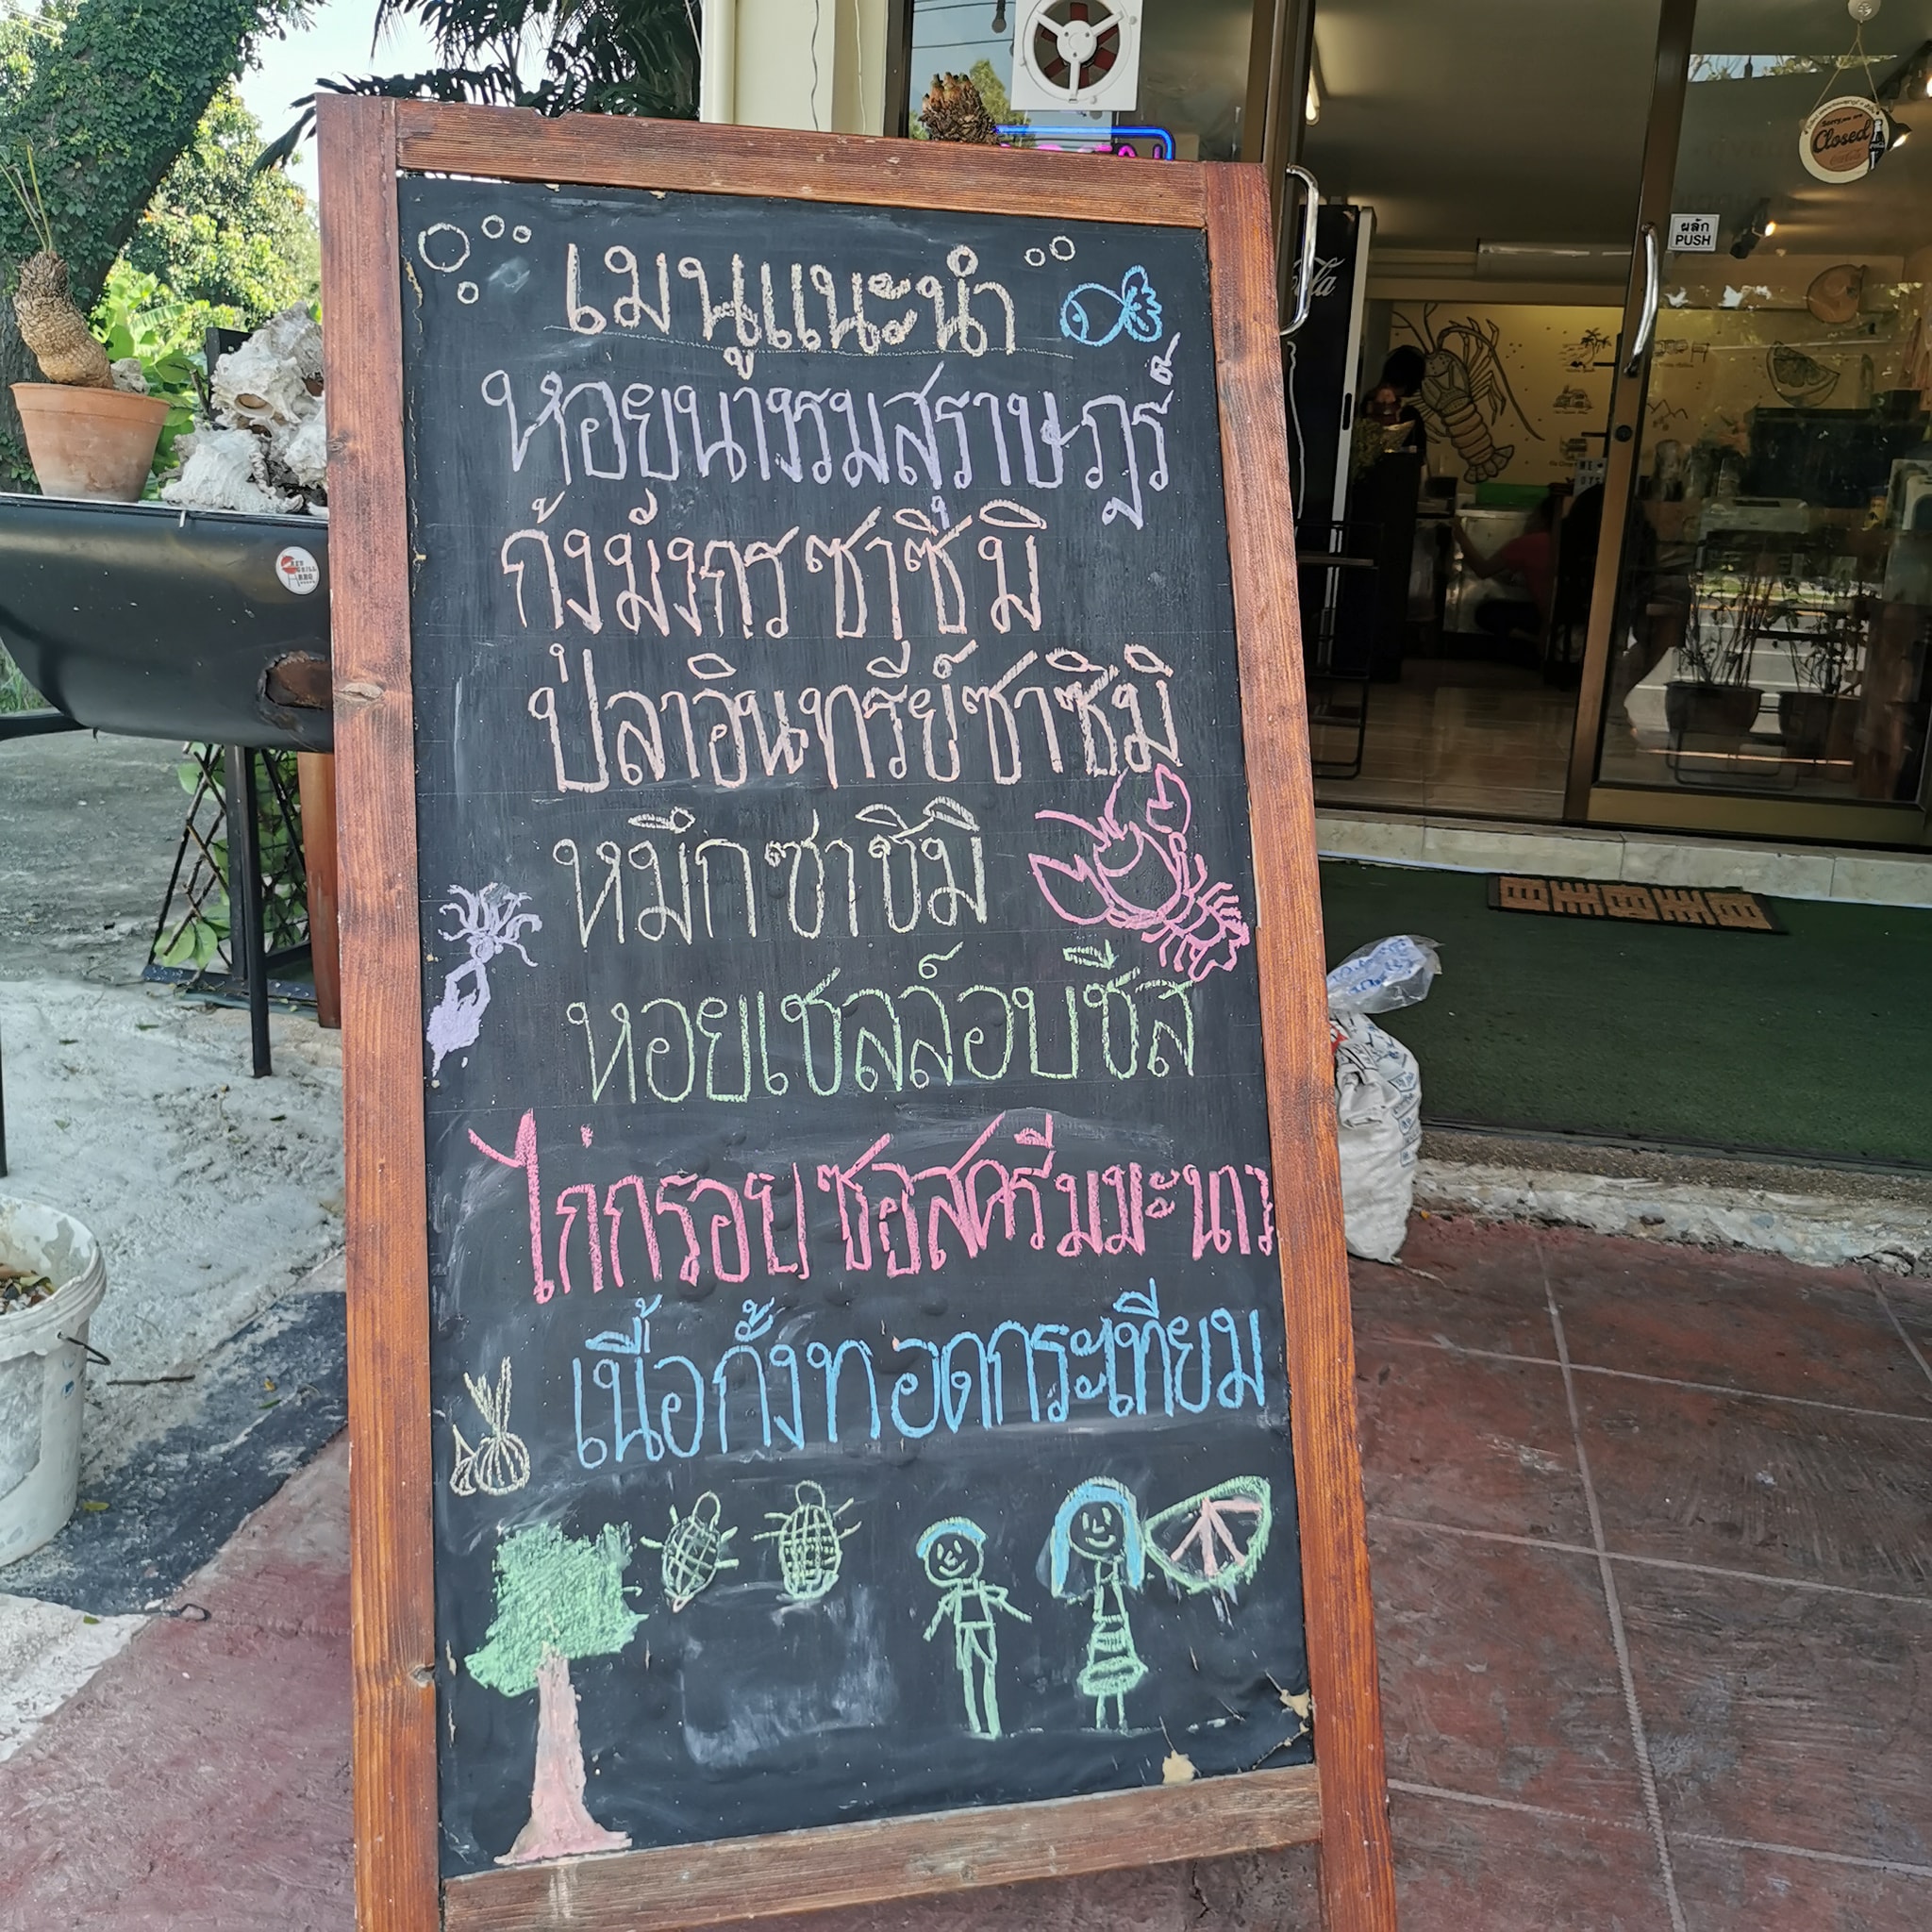 เมนูแนะนำ
หอยนางรมสุราษฎร์
กุ้งมังกรซาซิมิ
ปลาอินทรีย์ซาซิมิ
หมึกซาซิมิ
หอยเชลล์อบชีส
ไก่กรอบซอสครีมมะนาว
เนื้อกุ้งทอดกระเทียม
Sorry, we are
Closed
ผลัก
PUSH
GRILL
BBQ